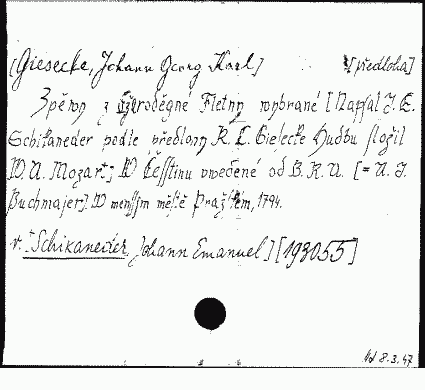 [Giesecke, Johann Georg Karl] [předloha]
Zpěwy z Czaroděgne Fletny wybrané [Napsal J. E.
Schikaneder podle předlohy K. L. Giesecke Hudbu složil
W. A. Mozart] W Češstinu uwedené od B. R. U. [= A. J.
Buchmajer]. W menssjm městě Pražském, 1794.
v. Schikaneder, Johann Emanuel] [193055]
Vd 8.3.47